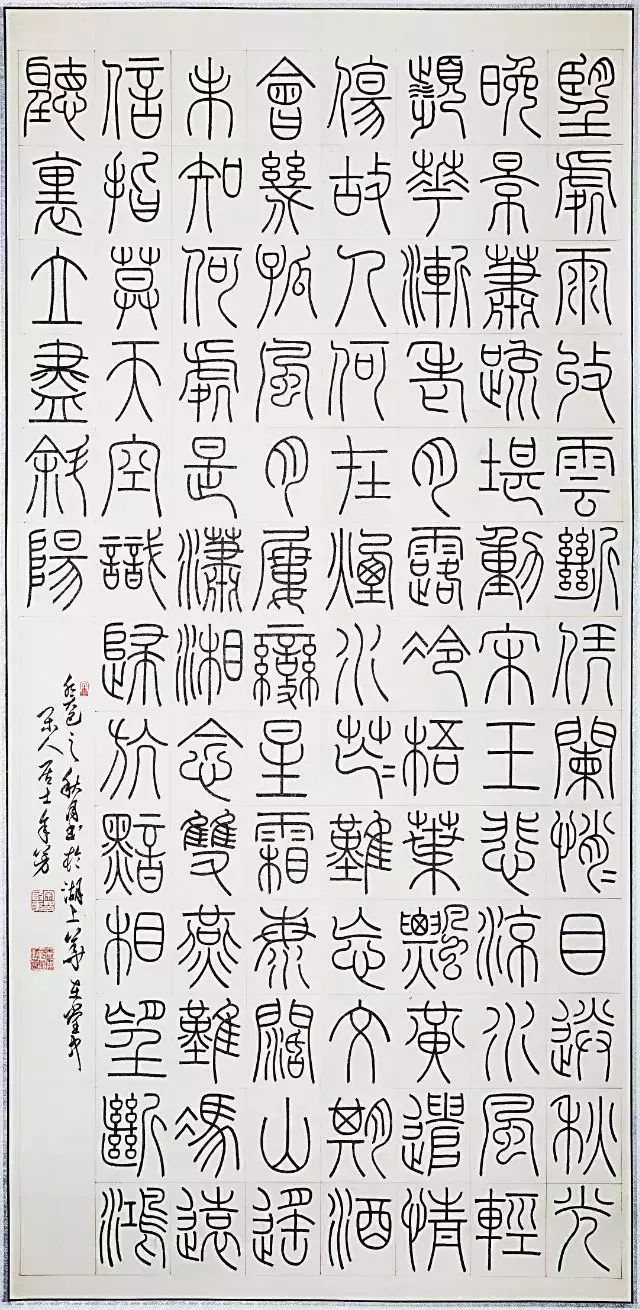 望處雨收雲斷凭闌悄〻目送秋光
晚景蕭疏堪動宋玉悲涼水風輕
頻華漸老月露冷梧葉飄黃遣情
傷故人何在煙水茫〻難忘文期酒
會幾孤風月屢變星霜海闊山遙
未知何處是瀟湘念雙燕難馮遠
信指莫天空識歸航黯相望斷鴻
聽裏立盡斜陽
之秋月書於湖上
人居士